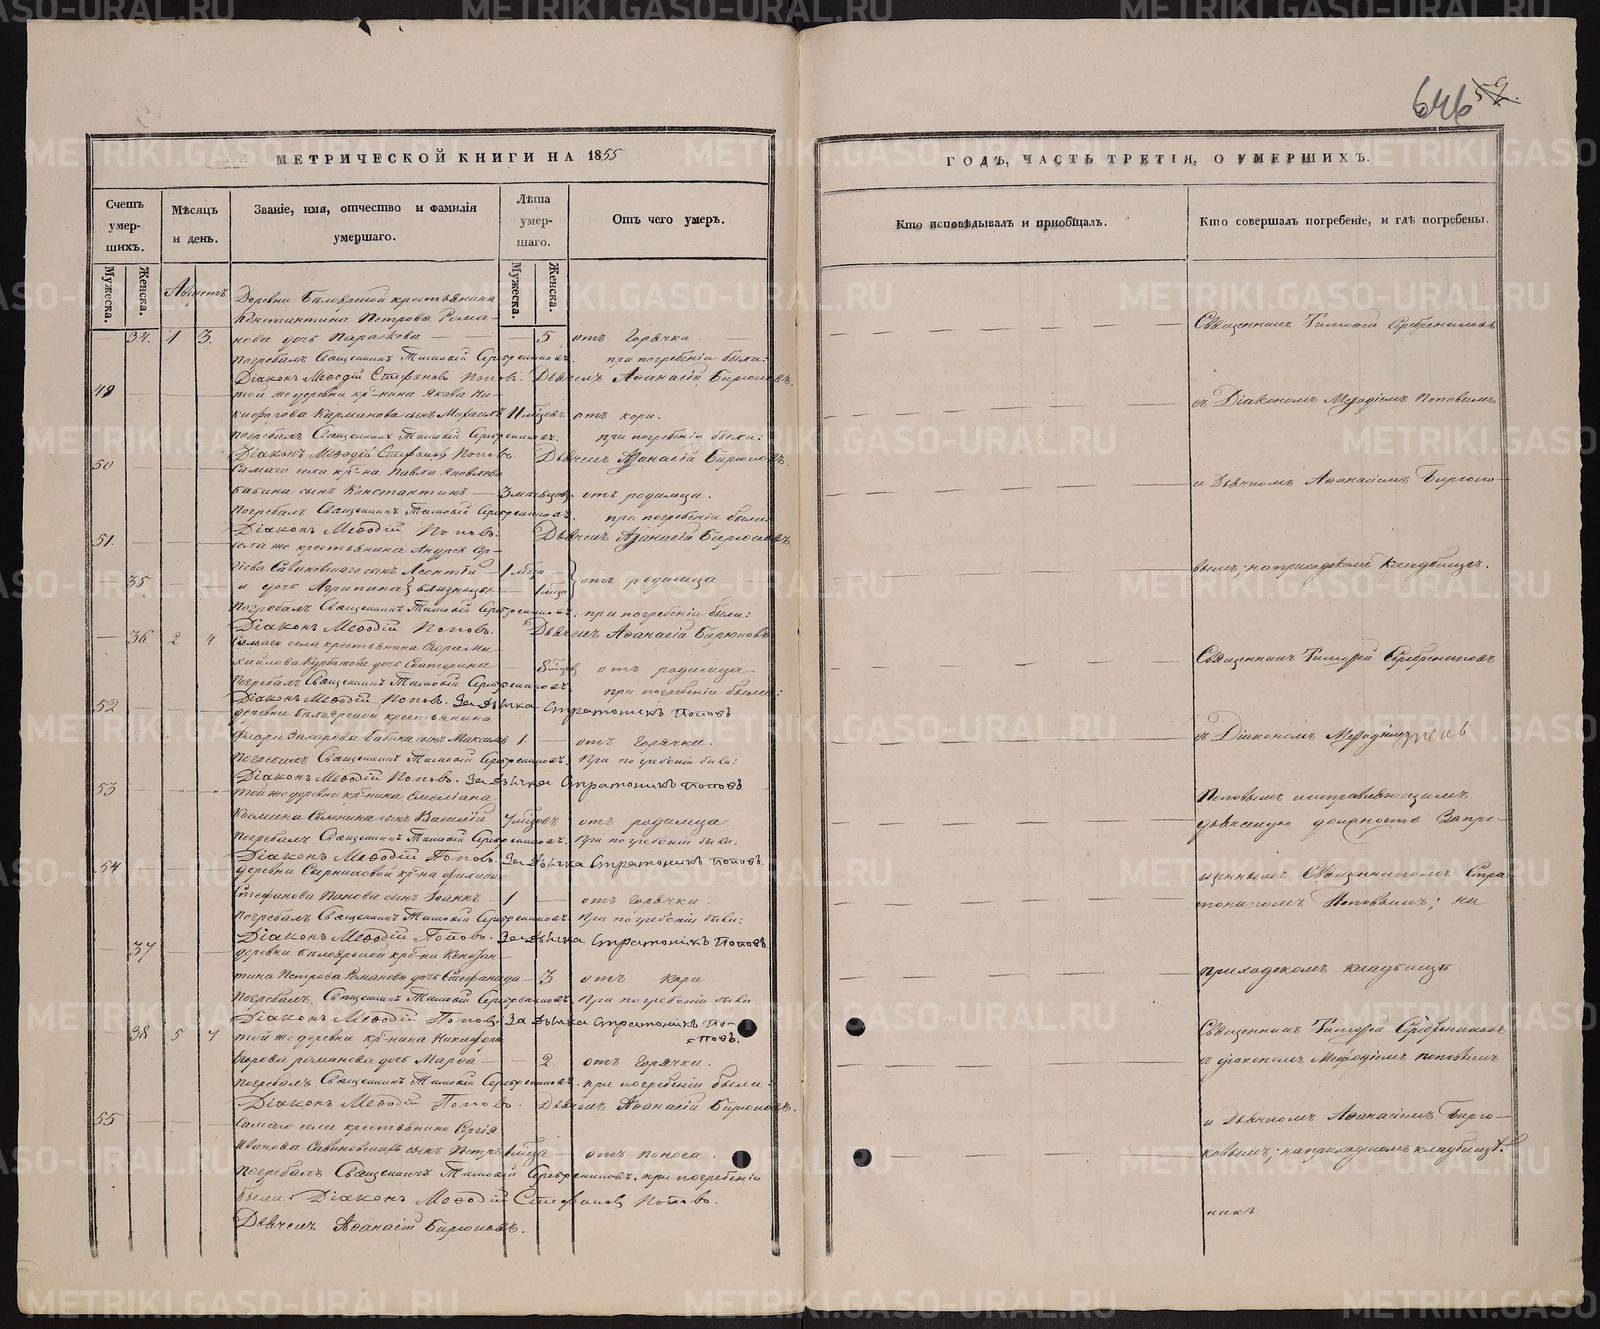 646 59.
МЕТРИЧЕСКОЙ КНИГИ НА 1855
Счетъ умер-шихъ.
Мѣсяцъ и день.
Званіе, имя, отчество и фамилія умершаго.
Лѣта умер-шаго.
Отъ чего умеръ.
Мужеска. Женска.
Мужеска. Женска.
Августъ
Деревни Бѣлоярской крестьянина
Константина Петрова Рома-
34. 1 3. нова дочь Параскева 5 отъ Горячки.
погребалъ Священникъ Тимоѳій Серебренниковъ. при погребеніи были:
Діаконъ Меѳодій Стефановъ Поповъ. Дьячекъ Аѳанасій Бирюковъ.
49 той же деревни кр-нина Якова Ни-
кифорова Карманова сынъ Михаилъ 11 мѣсцовъ отъ кори.
погребалъ Священникъ Тимоѳій Серебренниковъ. при погребеніи были:
Діаконъ Меѳодій Стефановъ Поповъ. Дьячекъ Аѳанасій Бирюковъ.
50 Самаго села кр-на Павла Яковлева
Бабина сынъ Константинъ 3 мѣсцовъ отъ родимца.
погребалъ Священникъ Тимоѳій Серебренниковъ. при погребеніи были
Діаконъ Меѳодій Поповъ. Дьячекъ Аѳанасій Бирюковъ.
51. села же крестьянина Андрея Сер-
гіева Савиновскаго сынъ Леонтій 1 мѣца
35 и дочь Агрипина близнецы 1 мѣца отъ родимца
погребалъ Священникъ Тимоѳій Серебренниковъ. при погребеніи были:
Діаконъ Меѳодій Поповъ. Дьячекъ Аѳанасій Бирюковъ
36 2 4 Самаго села крестьянина Егора Ми-
хайлова Курбакова дочь Екатерина 8 мѣцов отъ родимца
погребалъ Священникъ Тимоѳій Серебренниковъ. при погребеніи были:
Діаконъ Меѳодій Поповъ. За дьячка Стратоникъ Поповъ
52 деревни Бѣлоярской крестьянина
Захарова Бабина сынъ Максимъ 1. отъ горячки.
погребалъ Священникъ Тимоѳій Серебренниковъ. При погребеніи были:
Діаконъ Меѳодій Поповъ. За дьячка Стратоникъ Поповъ
53 той же деревни кр-нина Емеліана
сынъ Василій 7 мѣцовъ отъ родимца
погребалъ Священникъ Тимоѳій Серебренниковъ. При погребеніи были:
Діаконъ Меѳодій Поповъ. За дьячка Стратоникъ Поповъ.
54 деревни кр-на Филипа
Стефанова Панова сынъ Іоаннъ 1 отъ горячки.
погребалъ Священникъ Тимоѳій Серебренниковъ При погребеніи были:
Діаконъ Меѳодій Поповъ. За дьячка Стратоникъ Поповъ
37 деревни Бѣлоярской кр-на Констан-
тина Петрова Романова дочь Стефанида 3 отъ Кори.
погребалъ Священникъ Тимоѳій Серебренниковъ При погребеніи были:
Діаконъ Меѳодій Поповъ. За дьячка Стратоникъ По-
=повъ.
38 5 7 той же деревни кр-нина Никифора
Егорова романова дочь Марѳа 2. отъ горячки.
погребалъ Священникъ Тимоѳій Серебренниковъ. при погребеніи были
Діаконъ Меѳодій Поповъ. Дьячекъ Аѳанасій Бирюковъ.
55 Самаго села крестьянина Сергія
Иванова Савиновскихъ сынъ Петръ 1 мѣца отъ поноса.
погребалъ Священникъ Тимоѳій Серебренниковъ. при погребеніи
были: Діаконъ Меѳодій Стефановъ Поповъ.
Дьячекъ Аѳанасій Бирюковъ.
ГОДЪ, ЧАСТЬ ТРЕТІЯ, О УМЕРШИХЪ.
Кто исповѣдывалъ и пріобщалъ.
Кто совершалъ погребеніе, и гдѣ погребены.
Священникъ Тимоѳій Серебренниковъ
съ Діакономъ Меѳодіемъ Поповымъ
и Дьячкомъ Аѳанасіемъ Бирюко-
вымъ; на приходскомъ кладбищѣ.
Священникъ Тимоѳій Серебренниковъ
съ Діакономъ
Поповымъ и исправляющимъ
дьяческую должность Запре-
щеннымъ Священникомъ Стра
тоникомъ Поповымъ; на
приходскомъ кладбищѣ.
Священникъ Тимоѳій Серебренниковъ
съ діакономъ Меѳодіемъ Поповымъ
и Дьячкомъ Аѳанасіемъ Бирю-
ковымъ; на приходскомъ кладбищѣ.
никъ
METRIKI.GASO-URAL.RU